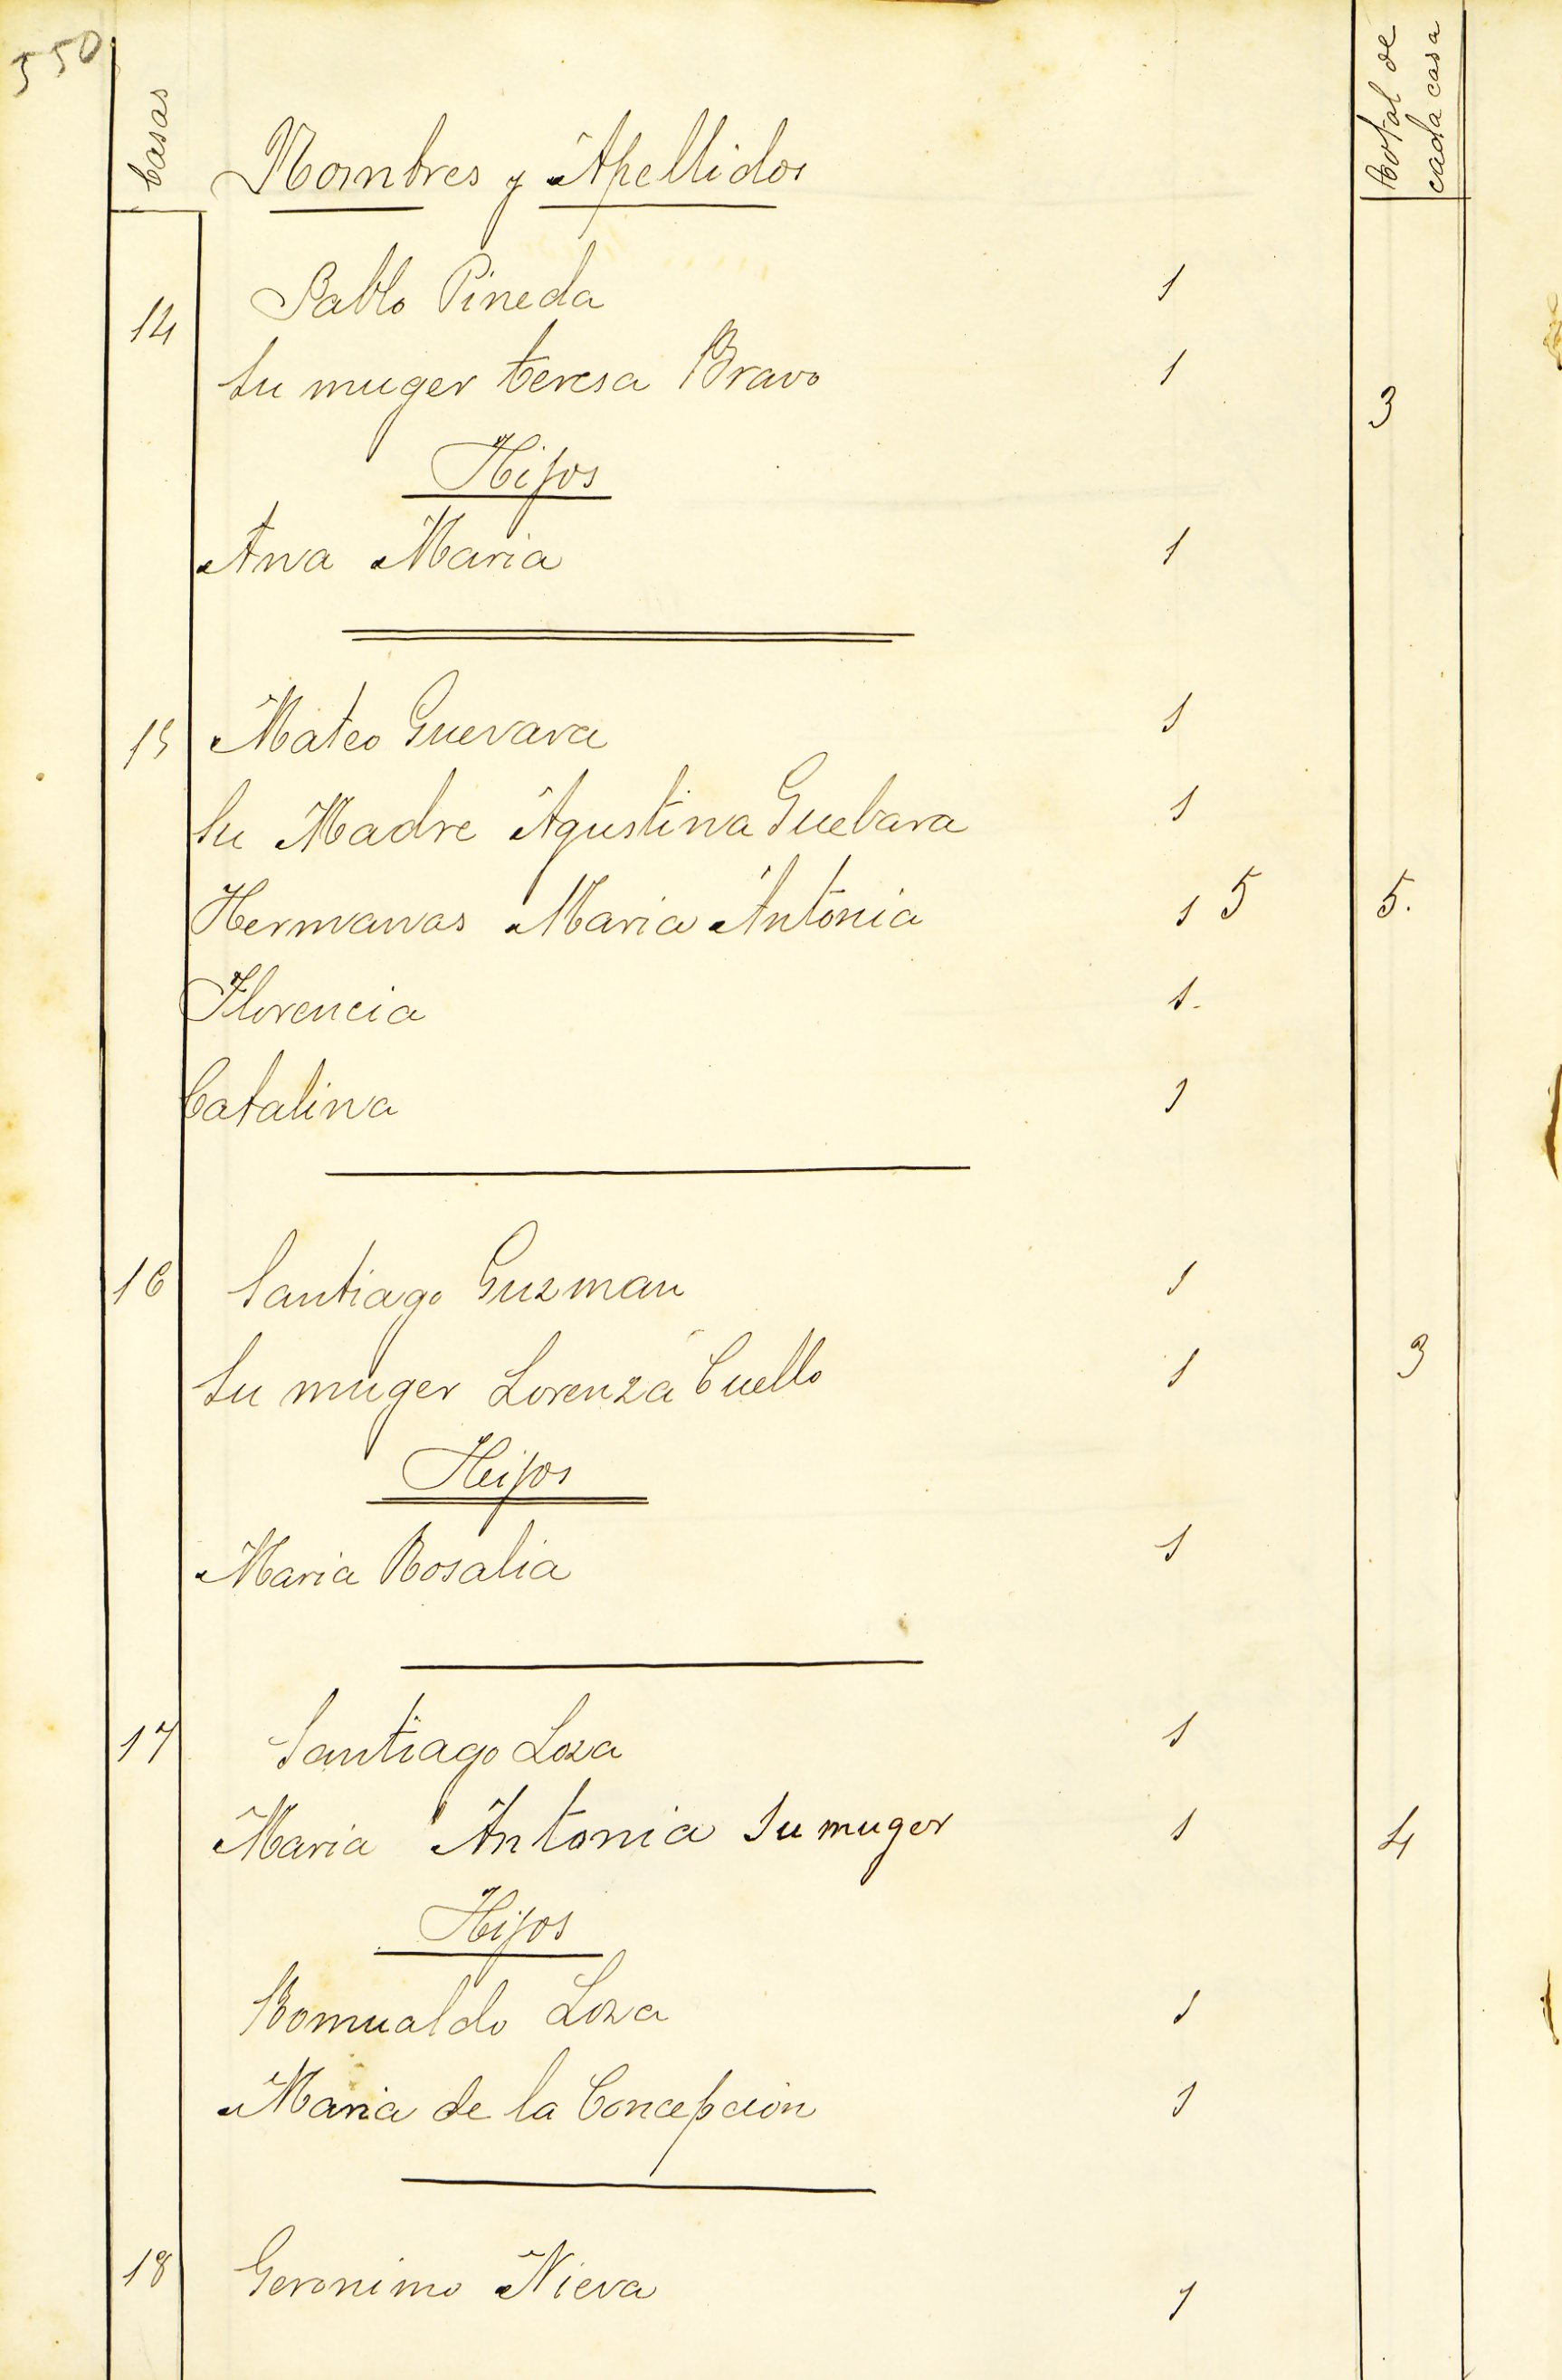 550
Casas
Nombres y Apellidos
total de
cada casa
14 Pablo Pineda 1
Su muger teresa Bravo 1 3
Hijos
Ana Maria 1
15 Mateo Guevara 1
Su Madre Agustina Guebara 1
Hermanas Maria Antonia 1 5 5.
Florencia 1.
Catalina 1
16 Santiago Guzman 1
Su muger Lorenza Cuello 1 3
Hijos
Maria Rosalia 1
17 Santiago Loza 1
Maria Antonia Su muger 1 4
Hijos
Romualdo Loza 1
Maria de la Concepcion 1
18 Geronimo Nieva 1